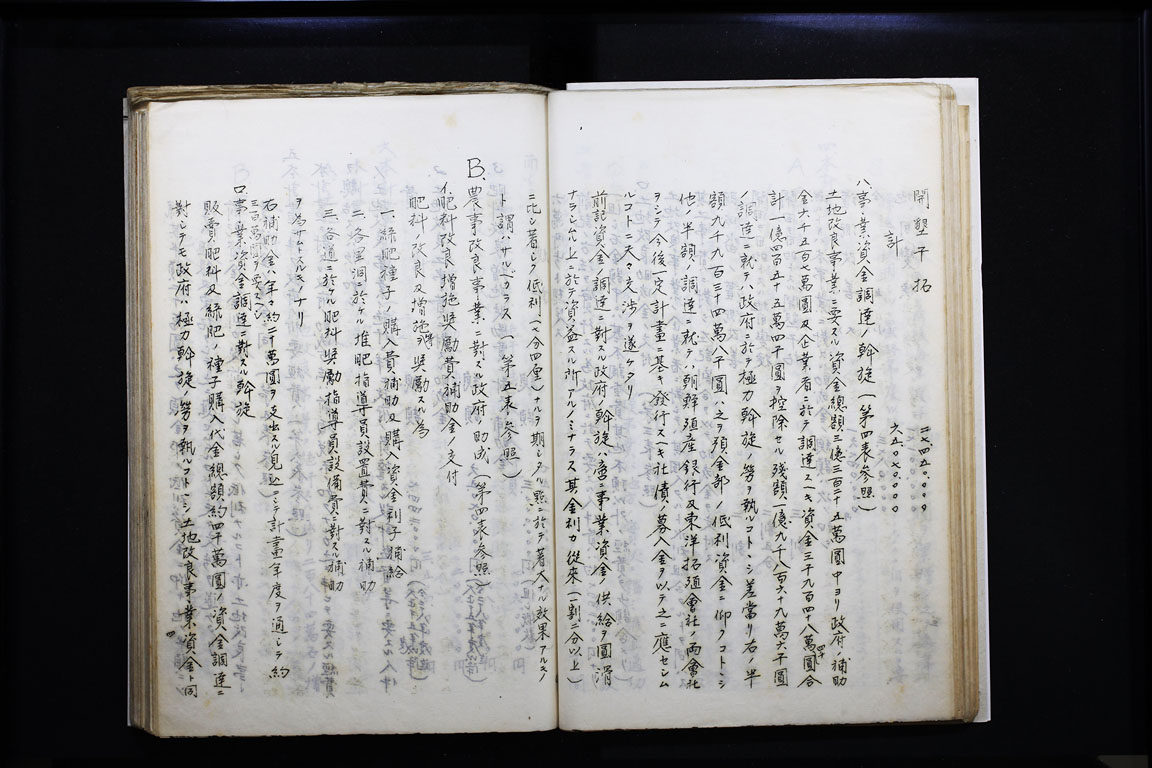 開墾干拓
二、七四五〇、〇〇〇
計
六五、〇七〇、〇〇〇
ハ、事業資金調達ノ斡旋(第四表参照)
土地改良事業ニ要スル資金總額三億三百二十五萬圓中ヨリ政府補助
金六千五百七萬圓及企業者ニ於テ調達スヘキ資金三千九百四十八萬四千圓合
計一億四百五十五萬四千圓ヲ控除セル殘額一億九千八百六十九萬六千圓
ノ調達ニ就テハ政府ニ於テ極力斡旋ノ勞ヲ執ルコトトシ差當リ右ノ半
額九千九百三十四萬八千圓ハ之ヲ預金部ノ低利資金ニ仰クコトトシ
他ノ半額ノ調達ニ就テハ朝鮮殖産銀行及東洋拓殖會社ノ兩會社
ヲシテ今後一定計畫ニ基キ發行スヘキ社債ノ募入金ヲ以テ之ニ應セシム
ルコトニ夫々交渉ヲ遂ケタリ
前記資金ノ調達ニ對スル政府ノ斡旋ハ啻ニ事業資金ノ供給ヲ圓滑
ナラシムル上ニ於テ資益スル所アルノミナラス其金利カ從來(一割二分以上)
ニ比シ著シク低利(七分四厘)ナルヲ期シタル點ニ於テ著大ナル效果アルモノ
ト謂ハサルヘカラス(第五表参照)
B.農事改良事業ニ對スル政府ノ助成(第四表参照)
イ、肥料改良増施奨勵費補助金ノ交付
肥料改良及増施ヲ奨勵スル為
一、緑肥種子ノ購入費補助及購入資金利子補給
二、各里洞ニ於ケル堆肥指導員設置費ニ對スル補助
三、各道ニ於ケル肥料奨勵指導員設備費ニ對スル補助
ヲ為サムトスルモノナリ
右補助金ハ年々約二十萬圓ヲ支出スル見込ニシテ計畫年度ヲ通シテ約
三百萬圓ヲ要スヘシ
ロ、事業資金調達ニ對スル斡旋
販賣肥料及緑肥ノ種子購入代金總額約四千萬圓ノ資金調達ニ
對シテモ政府ハ極力斡旋ノ勞ヲ執ルコトトシ土地改良事業資金ト同